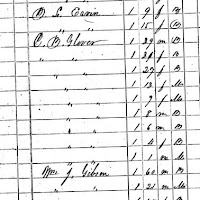 D. L. Cavin 1 9 f B
" " 1 15 f B
C. B. Glover 1 39 m B
" " 1 36 f B
" " 1 27 f B
" " 1 13 f M
" " 1 9 f M
" " 1 8 m B
" " 1 6 m B
" " 1 4 f B
" " 1 1 m M
Wm J. Gibson 1 60 m B
" " 1 21 m M